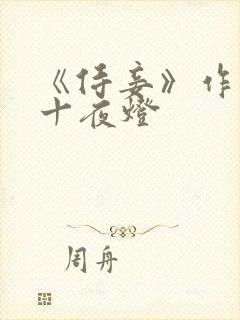 《侍妾》作
十夜燈
周舟